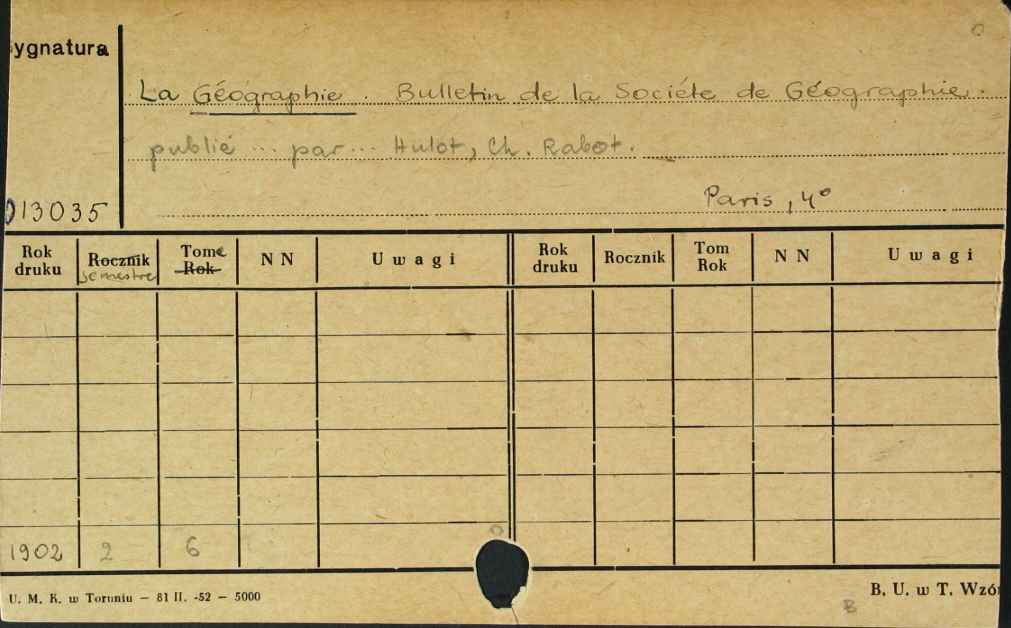 ygnatura
La Géographie. Bulletin de la Sociéte de Géographie.
publié ... par ... Hulot, Ch. Rabot.
013035
Paris, 4°
Rok druku Rocznik semestre Tome Rok NN Uwagi Rok druku Rocznik Tom Rok NN Uwagi
1902 2 6
U. M. K. w Toruniu — 81 II. -52 — 5000
B. U. w T. Wzó
B